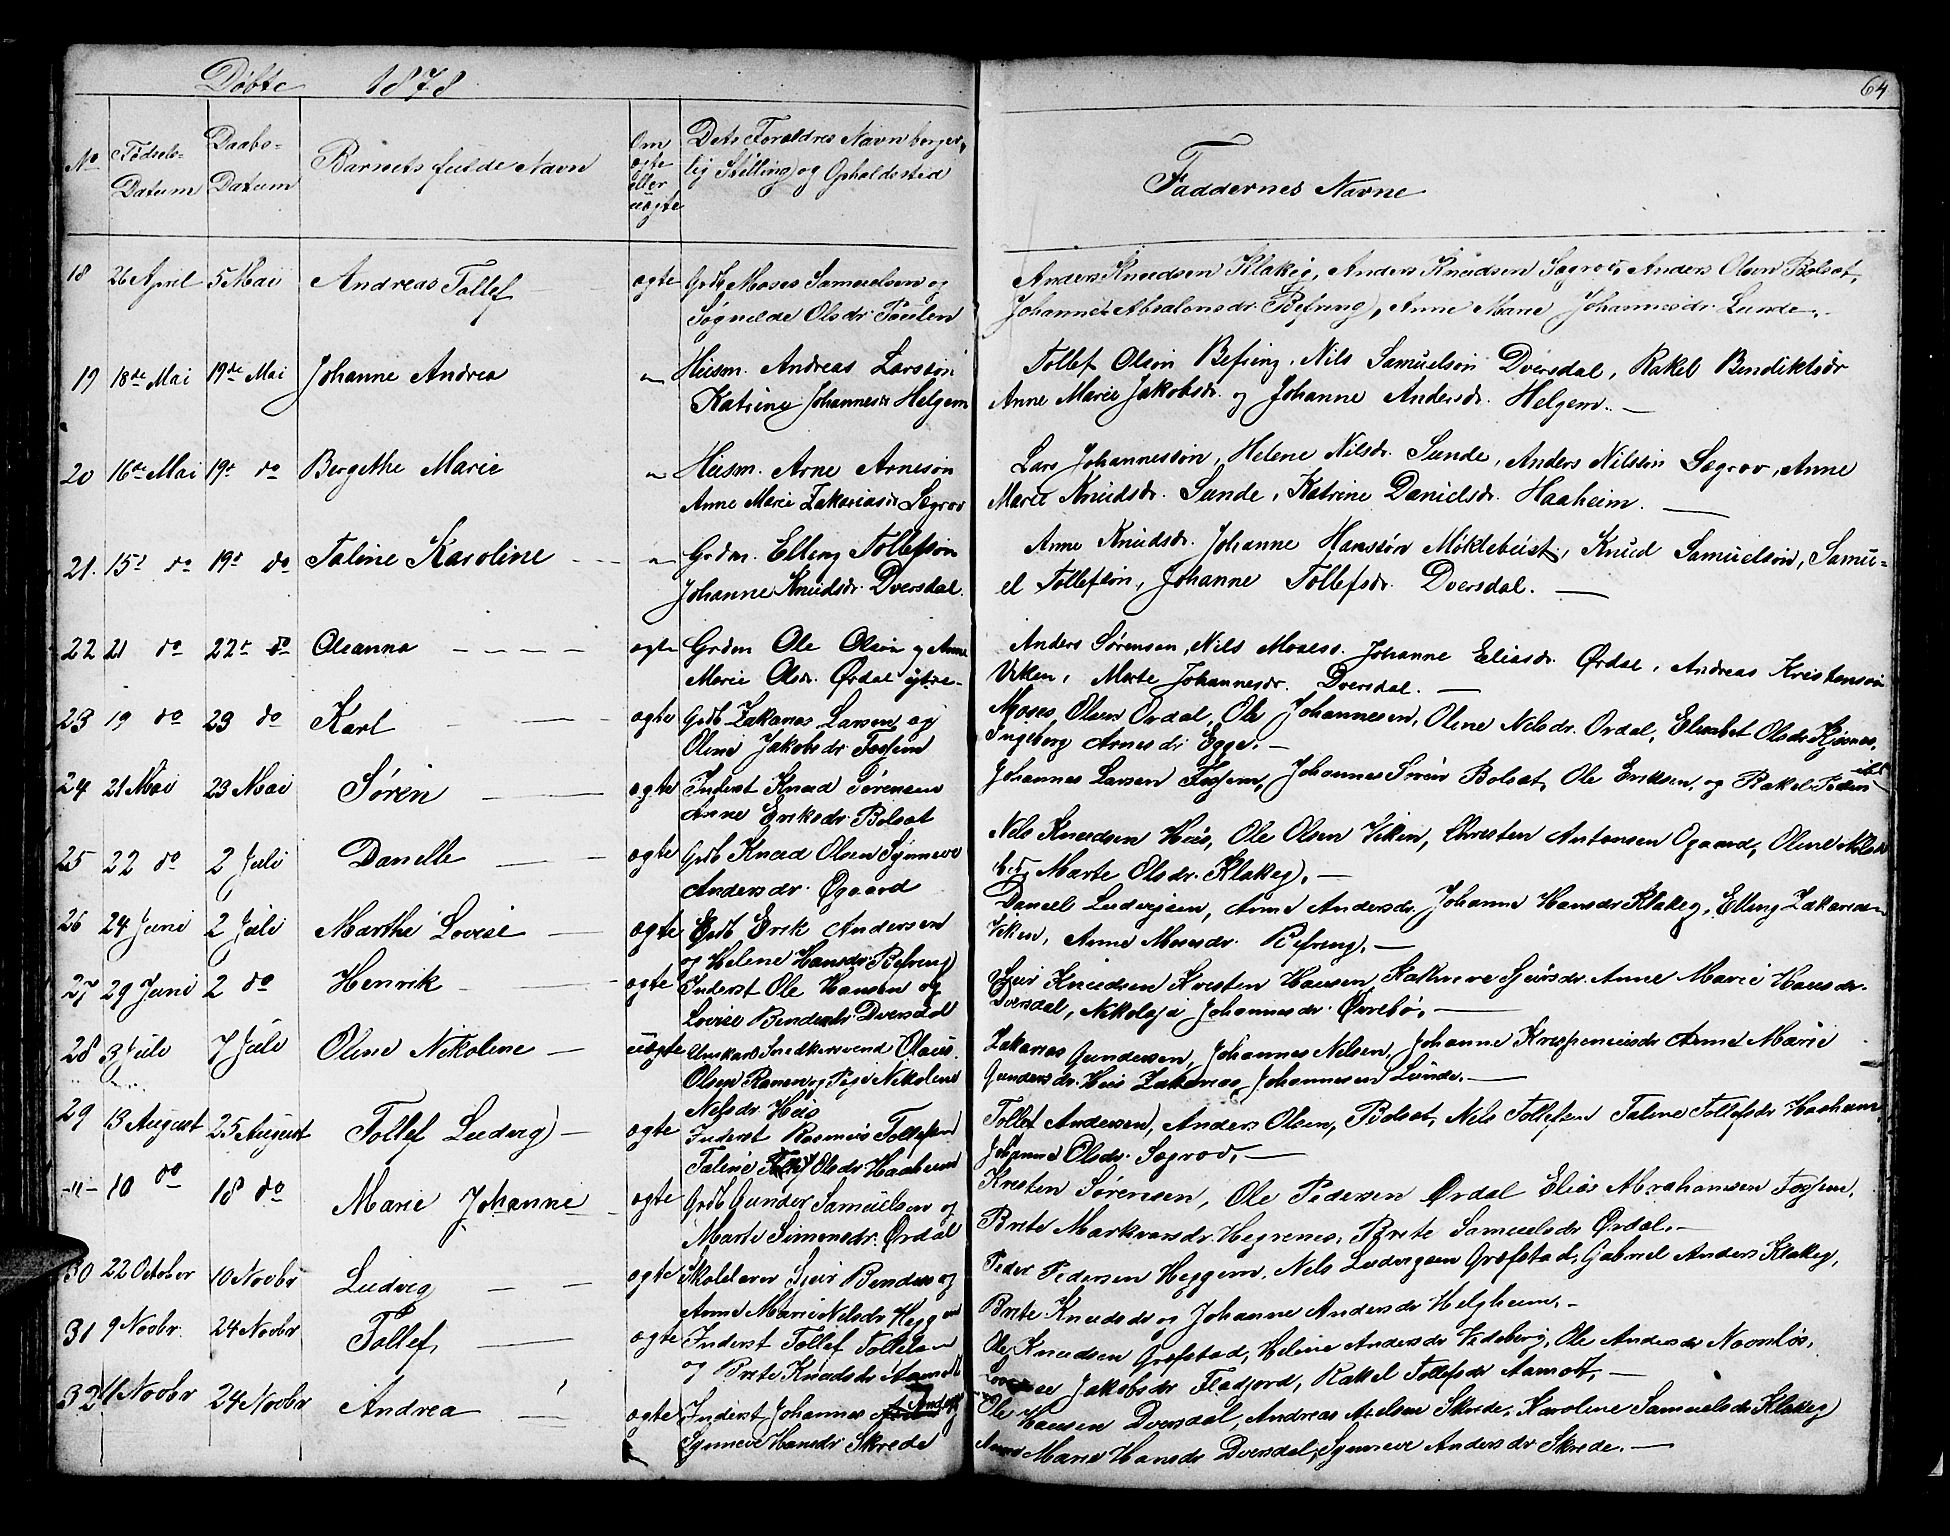 Døbte 1878
64
No
Fødsels-
Datum
Daabs-
Datum
Barnets fulde Navn
Om
ægte
eller
uægte
Dets Foraldres Navn borger-
lig Stilling og Opholdssted
Faddernes Navne
18 26 April 5 Mai Andreas Tollef ægte Grdb Moses Samuelsen og
Søgnelde Olsdr Paulen
Anders Knudsen Klakeg, Anders Knudsen Søgrov, Anders Olsen Bolsæt,
Johanne Absalonsdr Befring, Anne Marie Johannesdr Lunde.
19 18de Mai 19de Mai Johanne Andrea " Husm. Andreas Larssøn
Katrine Johannesdr Helgem
Tollef Olsøn Befring, Nils Samuelsøn Dversdal, Rakel Bendiktsdr
Anne Marie Jakobsdr. og Johanne Andersdr. Helgem. —
20 16de Mai 19de do Bergethe Marie " Husm. Arne Arnesøn
Anne Marie Zakariasdr Søgrov
Lars Johannessøn, Helene Nilsdr. Sunde, Anders Nilssøn Søgrov, Anne
Marie Knudsdr. Sunde, Katrine Danielsdr. Haaheim. —
21. 15d do 19d do Taline Karoline " Grdm. Elling Tollefsøn
Johanne Knudsdr. Dversdal.
Anne Knudsdr. Johanne Hanssøn Møklebust, Knud Samuelsøn, Samu=
el Tollefsøn, Johanne Tollefsdr. Dversdal. —
22 21 do 22d do Oleanna ægte Grdm Ole Olsøn og Anne
Marie Olsdr. Ørdal ytre-
Anders Sørensen, Nils Moses. Johanne Eliasdr. Ørdal, Andreas Kristensøn
Viken, Marte Johannesdr. Dversdal. —
23 19 do 23 do Karl ægte Grdb Zakarias Larsen og
Oline Jakobsdr Fossem
Moses Olsen Ordal, Ole Johannesen, Oline Nelsdr. Ordal, Elisabet Olsdr Hjesnes,
Ingeborg Arnesdr Egge. —
24 21 Mai 23 Mai Søren ægte Inderst Knud Sørensen
Anne Eriksdr Bolsæt
Johannes Larsen Fossem, Johannes Søren Bolsæt, Ole Eriksen, og Rakel Peders
25 22 do 2 Juli Danelle ægte Grdb Knud Olsen Synneve
Andersdr. Øgaard
Nels Knudsen Hus, Ole Olsen Viken, Christen Antonsen Ogaard, Oline Nelsdr
Marte Olsdr. Klakeg. —
26 24 Juni 2 Juli Marthe Lovise ægte Grdb Erik Andersen
og Helene Hansdr Befring
Daniel Ludvigsen, Anne Andersdr. Johanne Hansdr Klakeg, Elling Zakarias
Viken, Anne Mosesdr. Befring. —
27 29 Juni 2 do Henrik ægte Inderst Ole Hansen og
Lovise Bendesdr. Dversdal
Sjur Knudsen Kresten Hansen, Kathrine Sjursdr. Anne Marie Hansdr.
Dversdal, Nikolaja Johannesdr. Øvrebø. —
28 3 Juli 7 Juli Oline Nikoline — uægte Unskarl Snedkersvend Olaus
Olsen Ranen og Pige Nikoline
Nelsdr. Hus
Zakarias Gundersen, Johannes Nelsen, Johanne Krespeniusdr Anne Marie
Gundersdr. Hus Zakarias Johannesen Lunde. —
29 13 August 25 August Tollef Ludvig — ægte Inderst Rasmus Tollefsen
Taline Olsdr Haaheim
Tollef Andersen, Anders Olsen, Bolsæt, Nels Tollefsen Taline Tollefsdr Haaheim,
Johanne Olsdr. Søgrov. —
-"- 10 do 18 do Marie Johanne ægte Grdb Gunder Samuelsen og
Marte Simonsdr. Ørdal
Kresten Sørensen, Ole Pedersen Ørdal Elias Abrahamsen Fossem,
Brete Markvarsdr. Hegrenes, Brete Samuelsdr Ørdal. —
30 22 October 10 Novbr Ludvig ægte Skolelærer Sjur Bendes og
Anne Marie Nelsdr Heggem
Peder Pedersen Heggem, Nels Ludvigsen Grøfstad, Gabriel Anders Klakeg,
Brete Knudsdr og Johanne Andersdr Helgheim. —
31 9 Novbr 24 Novbr Tollef, ægte Inderst Tollef Tollefsen
og Brete Knudsdr Aamot
Ole Knudsen Grøfstad, Helene Andersdr Vedeberg, Ole Andersdr Navnløs,
Jakobsdr Fladjord, Rakel Tollefsdr Aamot, —
32 11 Novbr 24 Novbr Andrea ægte Inderst Johannes Anders
Synneve Hansdr Skrede
Ole Hansen Dversdal, Andreas Axelsen Skrede, Karoline Samuelsdr Klakeg
Anne Marie Hansdr Dversdal, Synneve Andersdr Skrede. —